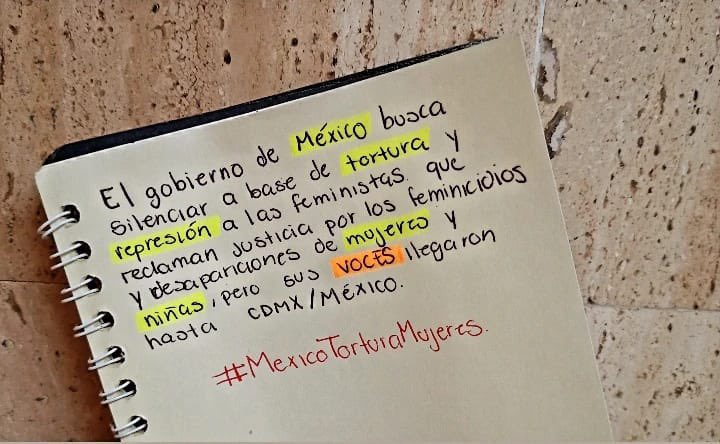 El gobierno de México busca
silenciar a base de tortura y
represión a las feministas que
reclaman justicia por los feminicidios
y desapariciones de mujeres y
niñas, pero sus voces llegaron
hasta CDMX/México.
#MexicoTorturaMujeres.